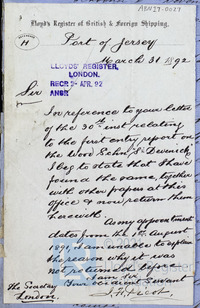 ABN27-0027
Lloyd's Register of British & Foreign Shipping.
H
Port of Jersey
March 31 1892
LLOYDS' REGISTER,
LONDON.
RECD 2- APR. 92
ANSD
Sir
In reference to your letter
of the 30th inst relating
to the first entry report on
the Wood Schr
I beg to state that I have
found the same, together
with other papers at this
office & now return them
herewith.
As my appointment
dates from the 1st August
1891, I am unable to explain
the reason why it was
not returned before
I am Sir
Your obedient Servant
The Secretary
London